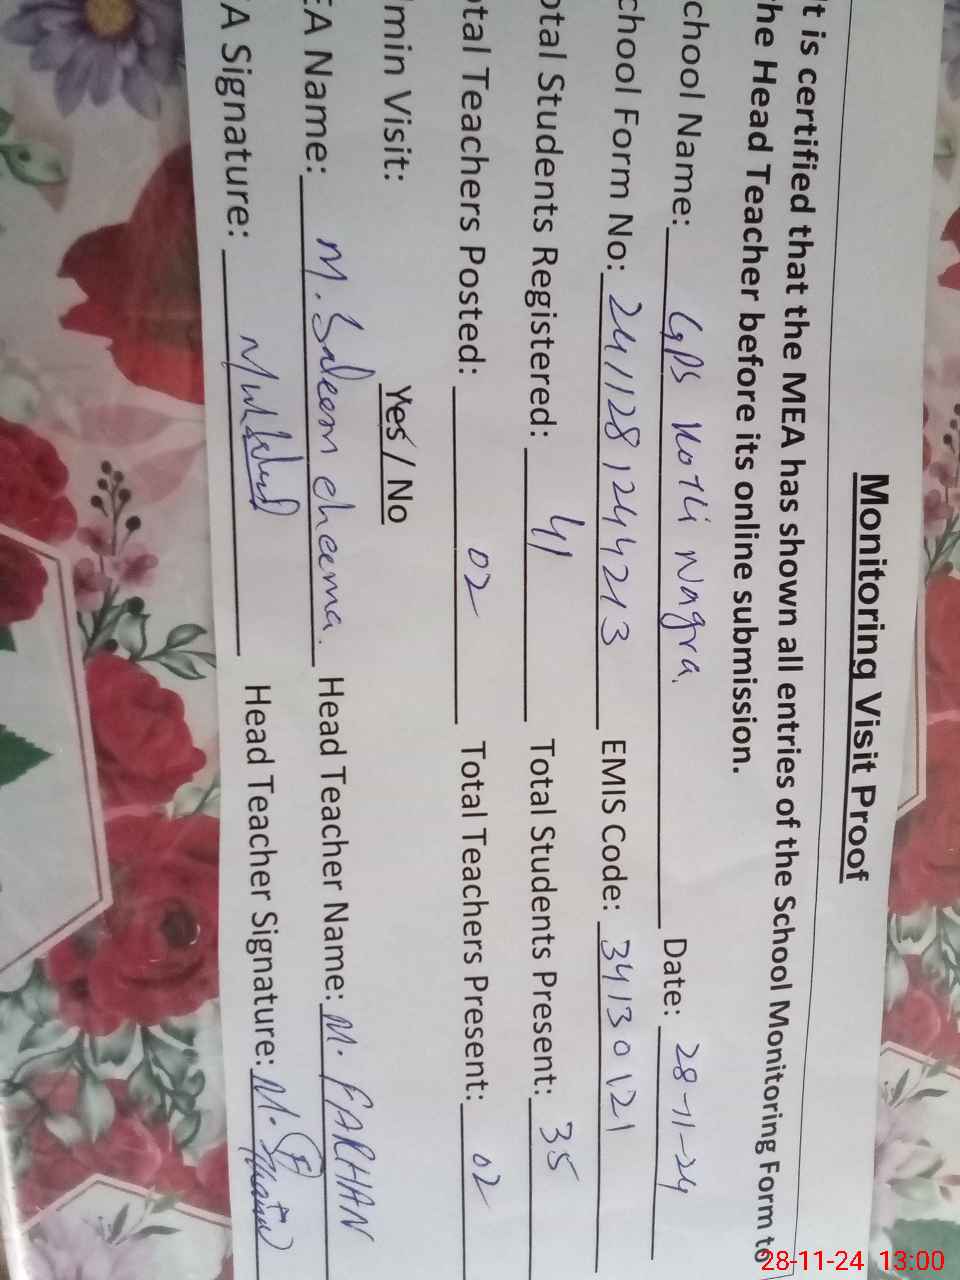 Monitoring Visit Proof
It is certified that the MEA has shown all entries of the School Monitoring Form to
the Head Teacher before its online submission.
chool Name: GPS Kotli Nagra. Date: 28-11-24
chool Form No: 2411281244213 EMIS Code: 34130121
otal Students Registered: 41 Total Students Present: 35
otal Teachers Posted: 02 Total Teachers Present: 02
dmin Visit: Yes / No
EA Name: M. Saleem cheema. Head Teacher Name: M. FARHAN
EA Signature: Head Teacher Signature: M.
28-11-24 13:00